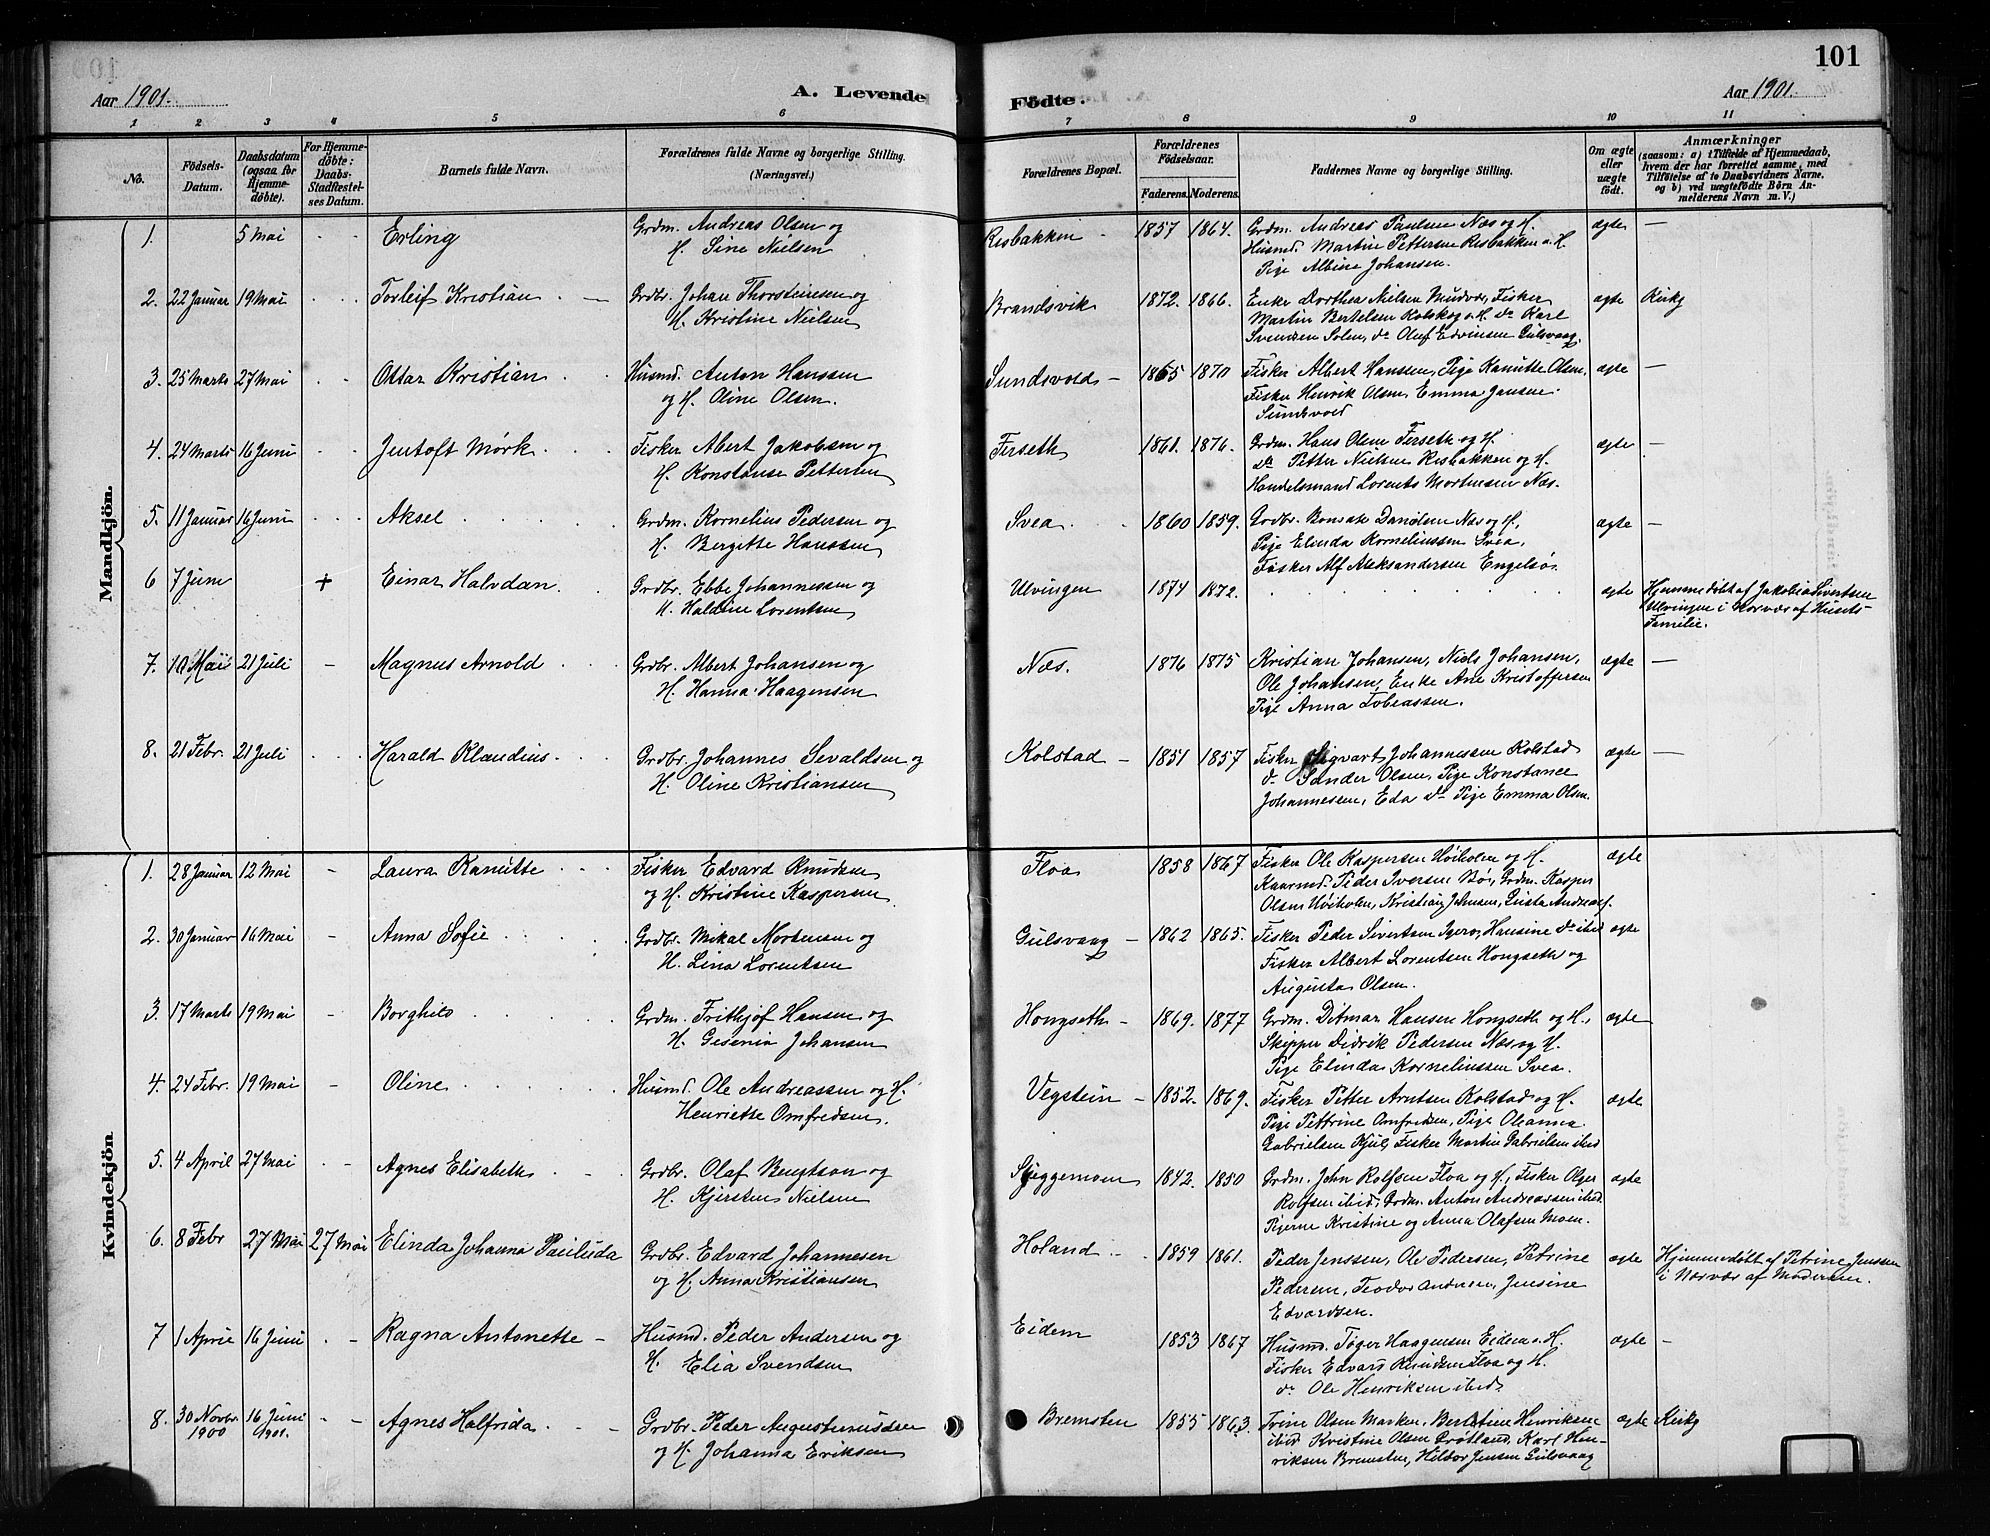 101
Aar 1901. A. Levende Födte. Aar 1901.
1 2 3 4 5 6 7 8 9 10 11
No. Födsels-Datum. Daabsdatum (ogsaa for Hjemmedöbte). For Hjemmedöbte: Daabs-Stadfestelses Datum. Barnets fulde Navn. Forældrenes fulde Navne og borgerlige Stilling. (Næringsvei.) Forældrenes Bopæl. Forældrenes Födselsaar. Faderens. Moderens. Faddernes Navne og borgerlige Stilling. Om ægte eller uægte födt. Anmærkninger (saasom: a) i Tilfælde af Hjemmedaab, hvem der har forrettet samme, med Tilföielse af to Daabsvidners Navne, og b) ved uægtefödte Börn Anmelderens Navn m. V.)
Mandkjön.
1. 5 Mai Erling Grdm. Andreas Olsen og Risbakken 1857 1864. Grdm. Andreas Paulsen Næs og H. ægte —
H. Sine Nielsen Husmd. Martin Pettersen Risbakken o. H.
Pige Albine Johansen.
2. 22 Januar 19 Mai Torleif Kristian Grdbr. Johan Thorsteinsen og Brandsvik 1872. 1866. Enke Dorthea Nielsen Mudvær, Fisker ægte Kirkg
H. Kristine Nielsen Martin Bertelsen Kolskog o. H. do Karl
Svendsen Solem, do Oluf Edvinsen Gulsvaag.
3. 25 Marts 27 Mai Ottar Kristian Husmd. Anton Hanssen Sundsvold 1865 1870 Fisker Albert Hansen, Pige Kanutte Olsen, ægte —
og H. Oline Olsen. Fisker Henrik Olsen, Emma Jensen
Sundsvold
4. 24 Marts 16 Juni Jentoft Mørk Fisker Abert Jakobsen og Ferseth 1861. 1876. Grdm. Hans Olsen Ferseth og H. ægte —
H. Konstanse Pettersen do Petter Nielsen Risbakken og H.
Handelsmand Lorents Mortensen Næs.
5. 11 Januar 16 Juni Aksel Grdm. Kornelius Pedersen og Svea 1860 1859. Grdbr. Danielsen Næs og H., ægte —
H. Bergitte Hanssen Pige Elinda Korneliussen Svea,
Fisker Alf Aleksandersen Engelsø.
6 7 Juni + Einar Halvdan Grdbr. Ebbe Johannessen og Ulvingen 1874 1872. ægte Hjemmedøbt af Jakobia Sivertsen
H. Haldine Lorentsen Ulvingen i Nærvær af Husets
Familie.
7. 10 Mai 21 Juli Magnus Arnold Grdbr. Albert Johansen og Næs. 1876 1875 Kristian Johansen, Niels Johansen, ægte —
H. Hanna Haagensen Ole Johansen, Enke Ane Kristoffersen
Pige Anna Tobiassen.
8. 21 Febr. 21 Juli Harald Klaudius Grdbr. Johannes Sevaldsen og Kolstad 1851 1857 Fisker Sigvart Johannessen Kolstad ægte —
H. Oline Kristiansen do Sander Olsen, Pige Konstance
Johannessen, Eda do Pige Emma Olsen.
Kvindekjön.
1. 28 Januar 12 Mai Laura Kanutte Fisker Edvard Knudsen Floa 1858 1867 Fisker Ole Kaspersen Høiholm og H. ægte
og H. Kristine Kaspersen Kaarmd. Peder Iversen Bø, Grdm. Kasper
Olsen Høiholm, Kristian Johnsen, Gusta Andreas.
2. 30 Januar 16 Mai Anna Sofie Grdbr. Mikal Mortensen og Gulsvaag 1862 1865. Fisker Peder Sivertsen Igerø, Hansine do ibid ægte
H. Lina Lorentsen Fisker Albert Lorentsen Hongseth og
Augusta Olsen.
3. 17 Marts 19 Mai Borghild Grdm. Frithjof Hansen og Hongseth 1869. 1877 Grdm. Ditmar Hansen Hongseth og H., ægte
H. Gesenia Johansen Skipper Didrik Pedersen Næs og H.
Pige Elinda Korneliussen Svea.
4. 24 Febr. 19 Mai Oline Husmd. Ole Andreassen og H. Vegstein 1852. 1869. Fisker Petter Arntsen Kolstad og H. ægte
Henriette Omfredsen. Pige Pettrine Omfredsen, Pige Oleanna
Gabrielsen Kjul, Fisker Martin Gabrielsen ibid
5. 4 April 27 Mai Agnes Elisabeth Grdbr. Olaf Bengtson og Skjeggemoen 1842. 1850 Grdm. John Rolfsen Floa og H., Fisker Olger ægte
H. Kjersten Nielsen Rolfsen ibid, Grdm. Anton Andreassen ibid
Pigerne Kristine og Anna Olafsen Moen.
6. 8 Febr 27 Mai 27 Mai Elinda Johanna Paulida Grdbr. Edvard Johannesen Holand 1859 1861. Peder Jenssen, Ole Pedersen, Petrine ægte Hjemmedøbt af Petrine Jenssen
og H. Anna Kristiansen Pedersen, Teodor Andersen, Jensine i Nærvær af Moderen.
Edvardsen.
7 1 April 16 Juni Ragna Antonette Husmd. Peder Andersen og Eidem 1853 1867 Husmd. Tøger Haagensen Eidem o. H. ægte —
H. Elia Svendsen Fisker Edvard Knudsen Floa og H.
do Ole Henriksen ibid
8. 30 Novbr. 1900 16 Juni 1901. Agnes Halfrida Grdbr. Peder Augustinussen Bremsten 1855 1863. Trine Olsen Marken, Berntine Henriksen ægte Kirkg
og H. Johanna Eriksen ibid Kristine Olsen Grøtland, Karl Hen-
riksen Bremsten, Hildor Jensen Gulsvaag